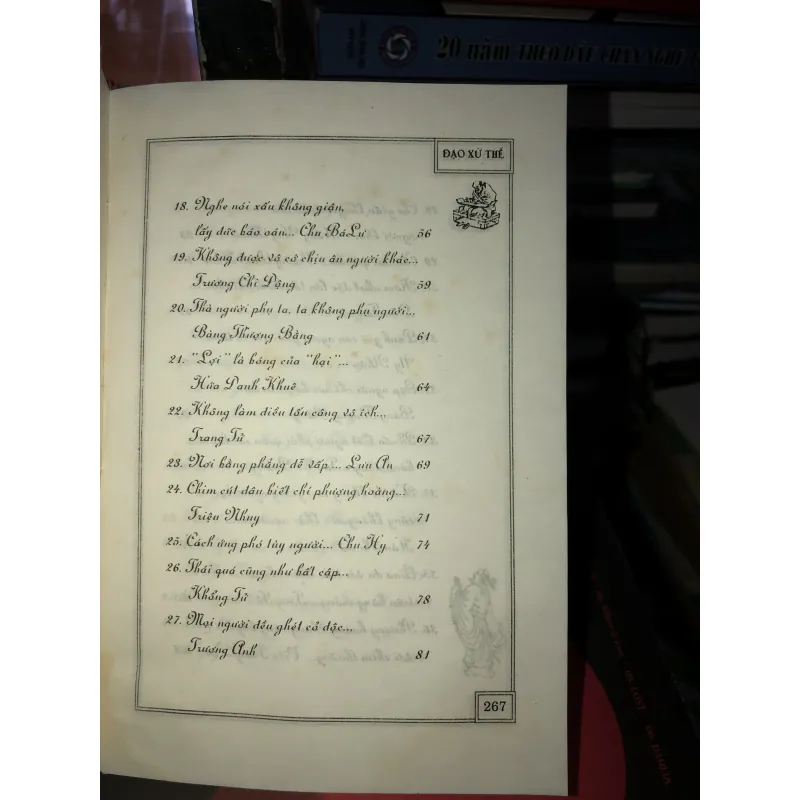 20 năm THEO DẤU CHÂN NGHỆ
ĐẠO XỬ THẾ
18. Nghe nói xấu không giận,
lấy đức báo oán... Chu Bá Lư 56
19. Không được vô cớ chịu ân người khác...
Trương Chi Động 59
20. Thà người phụ ta, ta không phụ người...
Bàng Thượng Bằng 61
21. "Lợi" là bóng của "hại"...
Hứa Danh Khuê 64
22. Không làm điều tốn công vô ích...
Trang Tử 67
23. Nơi bằng phẳng dễ vấp... Lưu An 69
24. Chim cút đâu biết chí phượng hoàng...
Triệu Nhuy 71
25. Cách ứng phó tùy người... Chu Hy 74
26. Thái quá cũng như bất cập...
Khổng Tử 78
27. Mọi người đều ghét cô độc...
Trương Anh 81
267